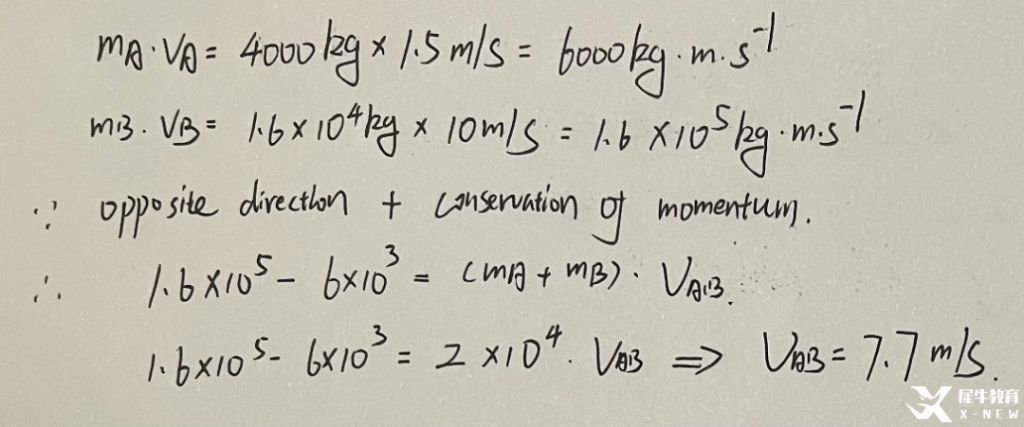 mA·VA= 4000kg × 1.5m/s = 6000kg·m·s⁻¹
mB·VB= 1.6×10⁴kg × 10m/s = 1.6×10⁵kg·m·s⁻¹
∵ opposite direction + conservation of momentum.
∴ 1.6×10⁵- 6×10³ = (mA+mB)·VAB.
1.6×10⁵- 6×10³ = 2×10⁴·VAB ⇒ VAB=7.7m/s.
犀牛教育
X-NEW